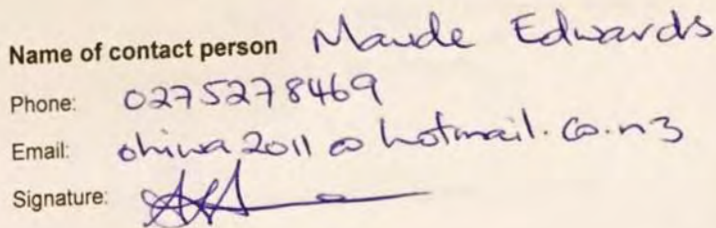 Name of contact person Maude Edwards
Phone: 0275278469
Email: ohiwa2011@hotmail.co.nz
Signature: